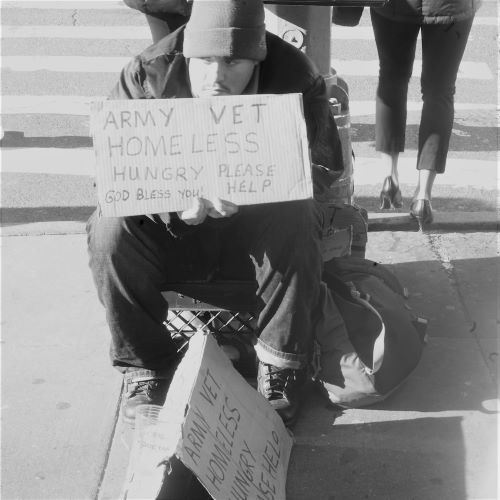 ARMY VET
HOMELESS
HUNGRY PLEASE
GOD BLESS YOU! HELP
ARMY VET
HOMELESS
HUNGRY
SE HELP